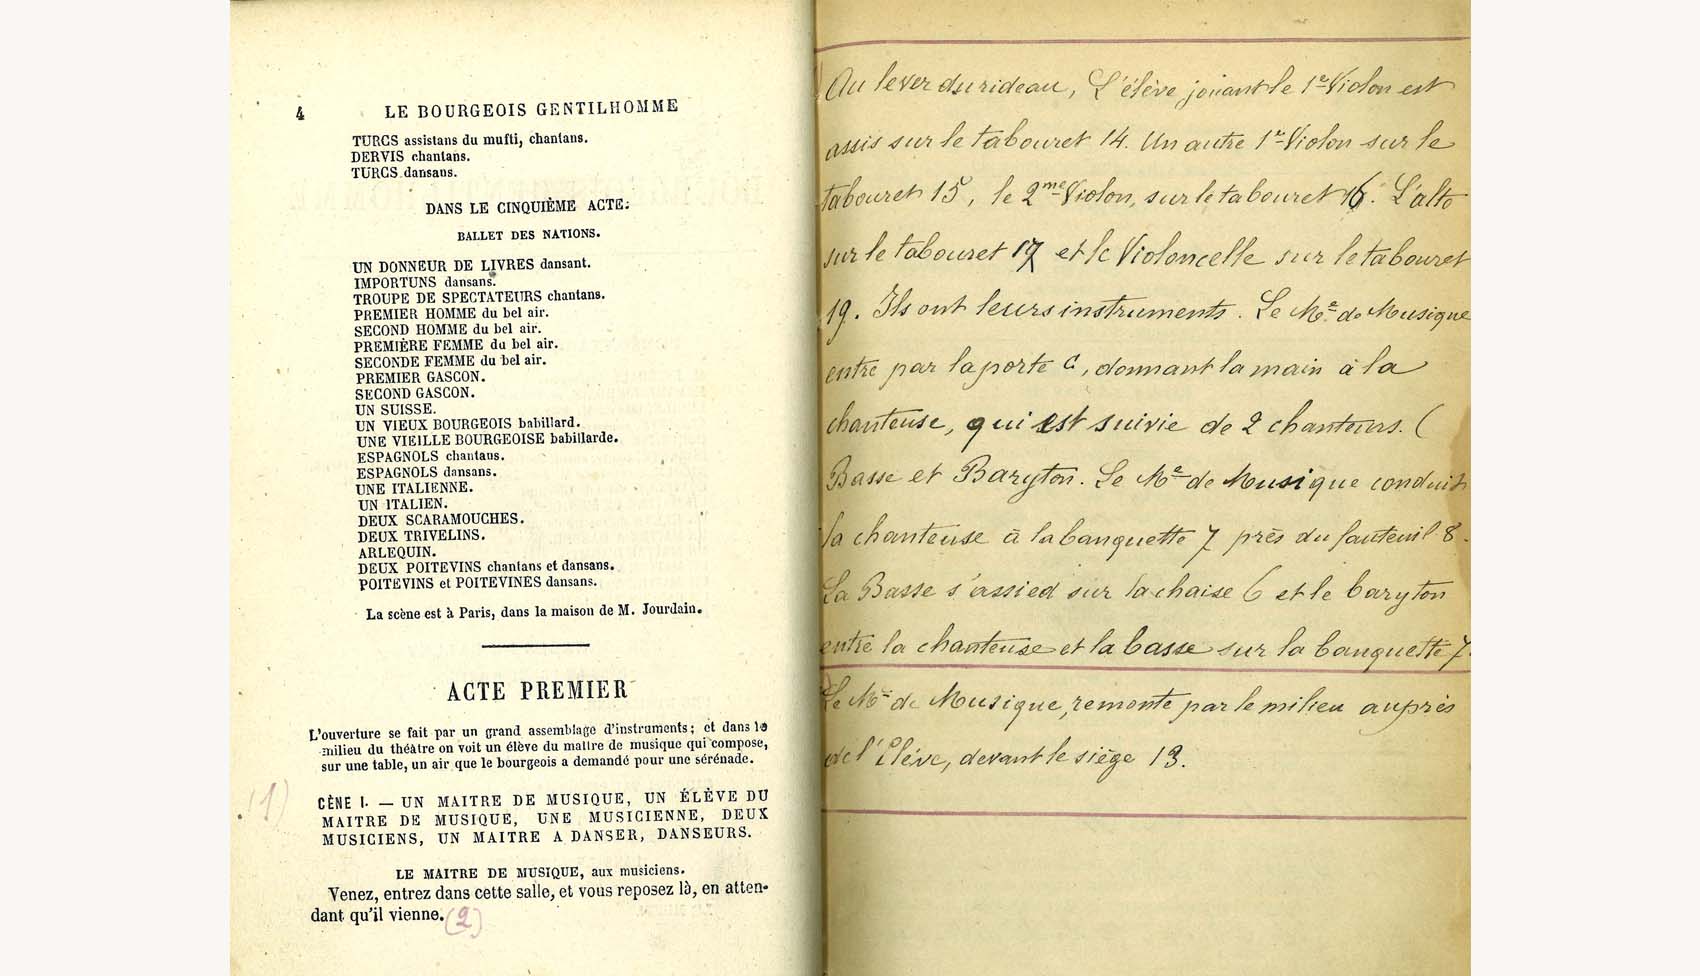 4 LE BOURGEOIS GENTILHOMME
TURCS assistans du mufti, chantans.
DERVIS chantans.
TURCS dansans.
DANS LE CINQUIÈME ACTE:
BALLET DES NATIONS.
UN DONNEUR DE LIVRES dansant.
IMPORTUNS dansans.
TROUPE DE SPECTATEURS chantans.
PREMIER HOMME du bel air.
SECOND HOMME du bel air.
PREMIÈRE FEMME du bel air.
SECONDE FEMME du bel air.
PREMIER GASCON.
SECOND GASCON.
UN SUISSE.
UN VIEUX BOURGEOIS babillard.
UNE VIEILLE BOURGEOISE babillarde.
ESPAGNOLS chantans.
ESPAGNOLS dansans.
UNE ITALIENNE.
UN ITALIEN.
DEUX SCARAMOUCHES.
DEUX TRIVELINS.
ARLEQUIN.
DEUX POITEVINS chantans et dansans.
POITEVINS et POITEVINES dansans.
La scène est à Paris, dans la maison de M. Jourdain.
ACTE PREMIER
L'ouverture se fait par un grand assemblage d'instruments; et dans le
milieu du théâtre on voit un élève du maître de musique qui compose,
sur une table, un air que le bourgeois a demandé pour une sérénade.
(1)
CÈNE I. — UN MAITRE DE MUSIQUE, UN ÉLÈVE DU
MAITRE DE MUSIQUE, UNE MUSICIENNE, DEUX
MUSICIENS, UN MAITRE A DANSER, DANSEURS.
LE MAITRE DE MUSIQUE, aux musiciens.
Venez, entrez dans cette salle, et vous reposez là, en atten-
dant qu'il vienne. (2)
Au lever du rideau, L'élève jouant le 1er Violon est
assis sur le tabouret 14. Un autre 1er Violon sur le
tabouret 15, le 2me Violon, sur le tabouret 16. L'alto
sur le tabouret 17 et le Violoncelle sur le tabouret
19. Ils ont leurs instruments. Le Me de Musique
entre par la porte C, donnant la main à la
chanteuse, qui est suivie de 2 chanteurs. (
Basse et Baryton. Le Me de Musique conduit
la chanteuse à la banquette 7 près du fauteuil 8.
La Basse s'assied sur la chaise 6 et le baryton
entre la chanteuse et la basse sur la banquette 7.
Le Me de Musique, remonte par le milieu auprès
de l'Elève, devant le siège 13.